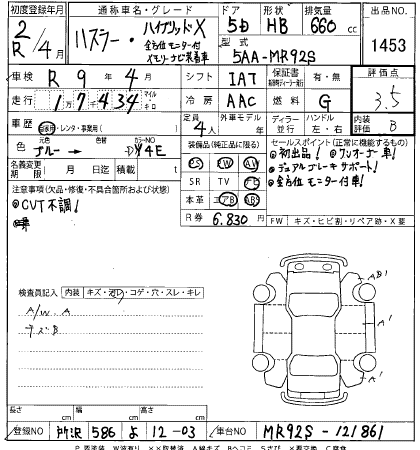 初度登録年月 通称車名・グレード ドア 形状 排気量 出品NO
R/2 4月 ハスラー・ハイブリッドX 5D HB 660cc 1453
全方位モニター付
メモリーナビ装着車
型式 5AA-MR92S
車検 R 9年 4月 シフト IAT 保証書 有・無 評価点
走行 17434 マイル キロ 冷房 AAC 燃料 G 3.5
車歴 自家用・レンタ・事業用( ) 定員 4人 外車モデル 年 ディーラー 並行 ハンドル 左・右 内装評価 B
色 元色 ブルー→ 色替 カラーNO
装備品(純正品に限る) セールスポイント(正常に機能するもの)
PS PW AW
●初出品! ●ワンオーナー車!
●デュアルブレーキサポート!
●全方位モニター付車!
名義変更期限 月 日迄 積載量 t
SR TV ナビ
本革 エアB ABS
R券 6.830円
FW キズ・ヒビ割・リペア跡・X要
注意事項(欠品・修復・不具合箇所および状態)
●CVT不調!
検査員記入 内装 キズ・汚レ・コゲ・穴・スレ・キレ
A/W A
A'
A'
長さ cm 幅 cm 高さ cm
登録NO 所沢 586 よ 12-03 車台NO MR92S-121861